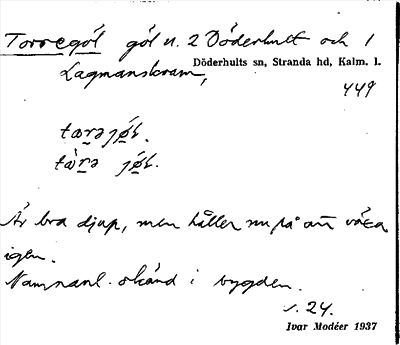 Torregöl göl n. 2 Döderhult och 1
Döderhults sn, Stranda hd, Kalm. l.
Lagmanskvarn,
449
tærəjø̀l.
tæ̀rə jø̀l.
Är bra djup, men håller nu på att växa
igen.
Namnanl. okänd i bygden.
s. 24.
Ivar Modéer 1937